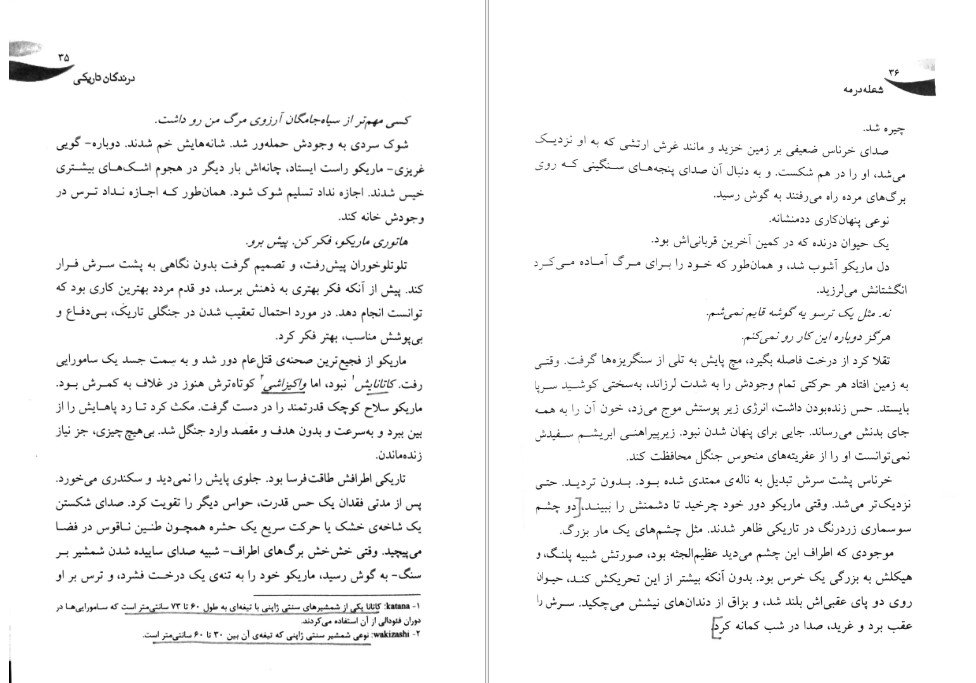 ۳۵
درندگان تاریکی
کسی مهم‌تر از سیاه‌جامگان آرزوی مرگ من رو داشت.
شوک سردی به وجودش حمله‌ور شد. شانه‌هایش خم شدند. دوباره- گویی
غریزی- ماریکو راست ایستاد، چانه‌اش بار دیگر در هجوم اشک‌های بیشتری
خیس شدند. اجازه نداد تسلیم شوک شود. همان‌طور که اجازه نداد ترس در
وجودش خانه کند.
هاتوری ماریکو، فکر کن. پیش برو.
تلوتلوخوران پیش‌رفت، و تصمیم گرفت بدون نگاهی به پشت سرش فرار
کند. پیش از آنکه فکر بهتری به ذهنش برسد، دو قدم مردد بهترین کاری بود که
توانست انجام دهد. در مورد احتمال تعقیب شدن در جنگلی تاریک، بی‌دفاع و
بی‌پوشش مناسب، بهتر فکر کرد.
ماریکو از فجیع‌ترین صحنه‌ی قتل‌عام دور شد و به سمت جسد یک سامورایی
رفت. کاتانایش۱ نبود، اما واکیزاشی۲ کوتاه‌ترش هنوز در غلاف به کمرش بود.
ماریکو سلاح کوچک قدرتمند را در دست گرفت. مکث کرد تا رد پاهایش را از
بین ببرد و به‌سرعت و بدون هدف و مقصد وارد جنگل شد. بی‌هیچ‌چیزی، جز نیاز
زنده‌ماندن.
تاریکی اطرافش طاقت‌فرسا بود. جلوی پایش را نمی‌دید و سکندری می‌خورد.
پس از مدتی فقدان یک حس قدرت، حواس دیگر را تقویت کرد. صدای شکستن
یک شاخه‌ی خشک یا حرکت سریع یک حشره همچون طنین ناقوس در فضا
می‌پیچید. وقتی خش‌خش برگ‌های اطراف- شبیه صدای ساییده شدن شمشیر بر
سنگ- به گوش رسید، ماریکو خود را به تنه‌ی یک درخت فشرد، و ترس بر او
۱- katana: کاتانا یکی از شمشیرهای سنتی ژاپنی با تیغه‌ای به طول ۶۰ تا ۷۳ سانتی‌متر است که سامورایی‌ها در
دوران فئودالی از آن استفاده می‌کردند.
۲- wakizashi: نوعی شمشیر سنتی ژاپنی که تیغه‌ی آن بین ۳۰ تا ۶۰ سانتی‌متر است.
۳۶
شعله در مه
چیره شد.
صدای خرناس ضعیفی بر زمین خزید و مانند غرش ارتشی که به او نزدیک
می‌شد، او را در هم شکست. و به دنبال آن صدای پنجه‌های سنگینی که روی
برگ‌های مرده راه می‌رفتند به گوش رسید.
نوعی پنهان‌کاری ددمنشانه.
یک حیوان درنده که در کمین آخرین قربانی‌اش بود.
دل ماریکو آشوب شد، و همان‌طور که خود را برای مرگ آماده می‌کرد
انگشتانش می‌لرزید.
نه. مثل یک ترسو یه گوشه قایم نمی‌شم.
هرگز دوباره این کار رو نمی‌کنم.
تقلا کرد از درخت فاصله بگیرد، مچ پایش به تلی از سنگریزه‌ها گرفت. وقتی
به زمین افتاد هر حرکتی تمام وجودش را به شدت لرزاند، به‌سختی کوشید سرپا
بایستد. حس زنده‌بودن داشت، انرژی زیر پوستش موج می‌زد، خون آن را به همه
جای بدنش می‌رساند. جایی برای پنهان شدن نبود. زیرپیراهنی ابریشم سفیدش
نمی‌توانست او را از عفریته‌های منحوس جنگل محافظت کند.
خرناس پشت سرش تبدیل به ناله‌ی ممتدی شده بود. بدون تردید. حتی
نزدیک‌تر می‌شد. وقتی ماریکو دور خود چرخید تا دشمنش را ببیند، [دو چشم
سوسماری زردرنگ در تاریکی ظاهر شدند. مثل چشم‌های یک مار بزرگ.
موجودی که اطراف این چشم می‌دید عظیم‌الجثه بود، صورتش شبیه پلنگ، و
هیکلش به بزرگی یک خرس بود. بدون آنکه بیشتر از این تحریکش کند، حیوان
روی دو پای عقبی‌اش بلند شد، و بزاق از دندان‌های نیشش می‌چکید. سرش را
عقب برد و غرید، صدا در شب کمانه کرد.]